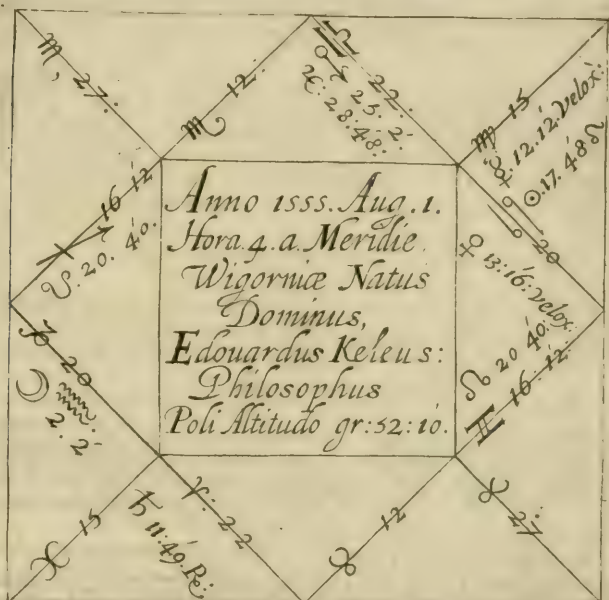 ♏ 27:
♏ 12:
♎ 22:
♂ 25. 2:
♃: 28: 48:
♍ 15
12. 12. velox:
☉. 17. 48 ♌
♋ 20
♀ 13: 16: velox:
☊ 20 40:
♊ 16. 12:
♉ 27:
♉ 12
♈: 22
♄ 11: 49. Re:
♓ 15
☽ ♒ 2. 2:
♑ 20
☋. 20. 40.
♐ 16 12
Anno 1555. Aug. 1.
Hora. 4. a. Meridie.
Wigorniæ Natus
Dominus,
Edouardus Keleus:
Philosophus
Poli Altitudo gr: 52: 10.